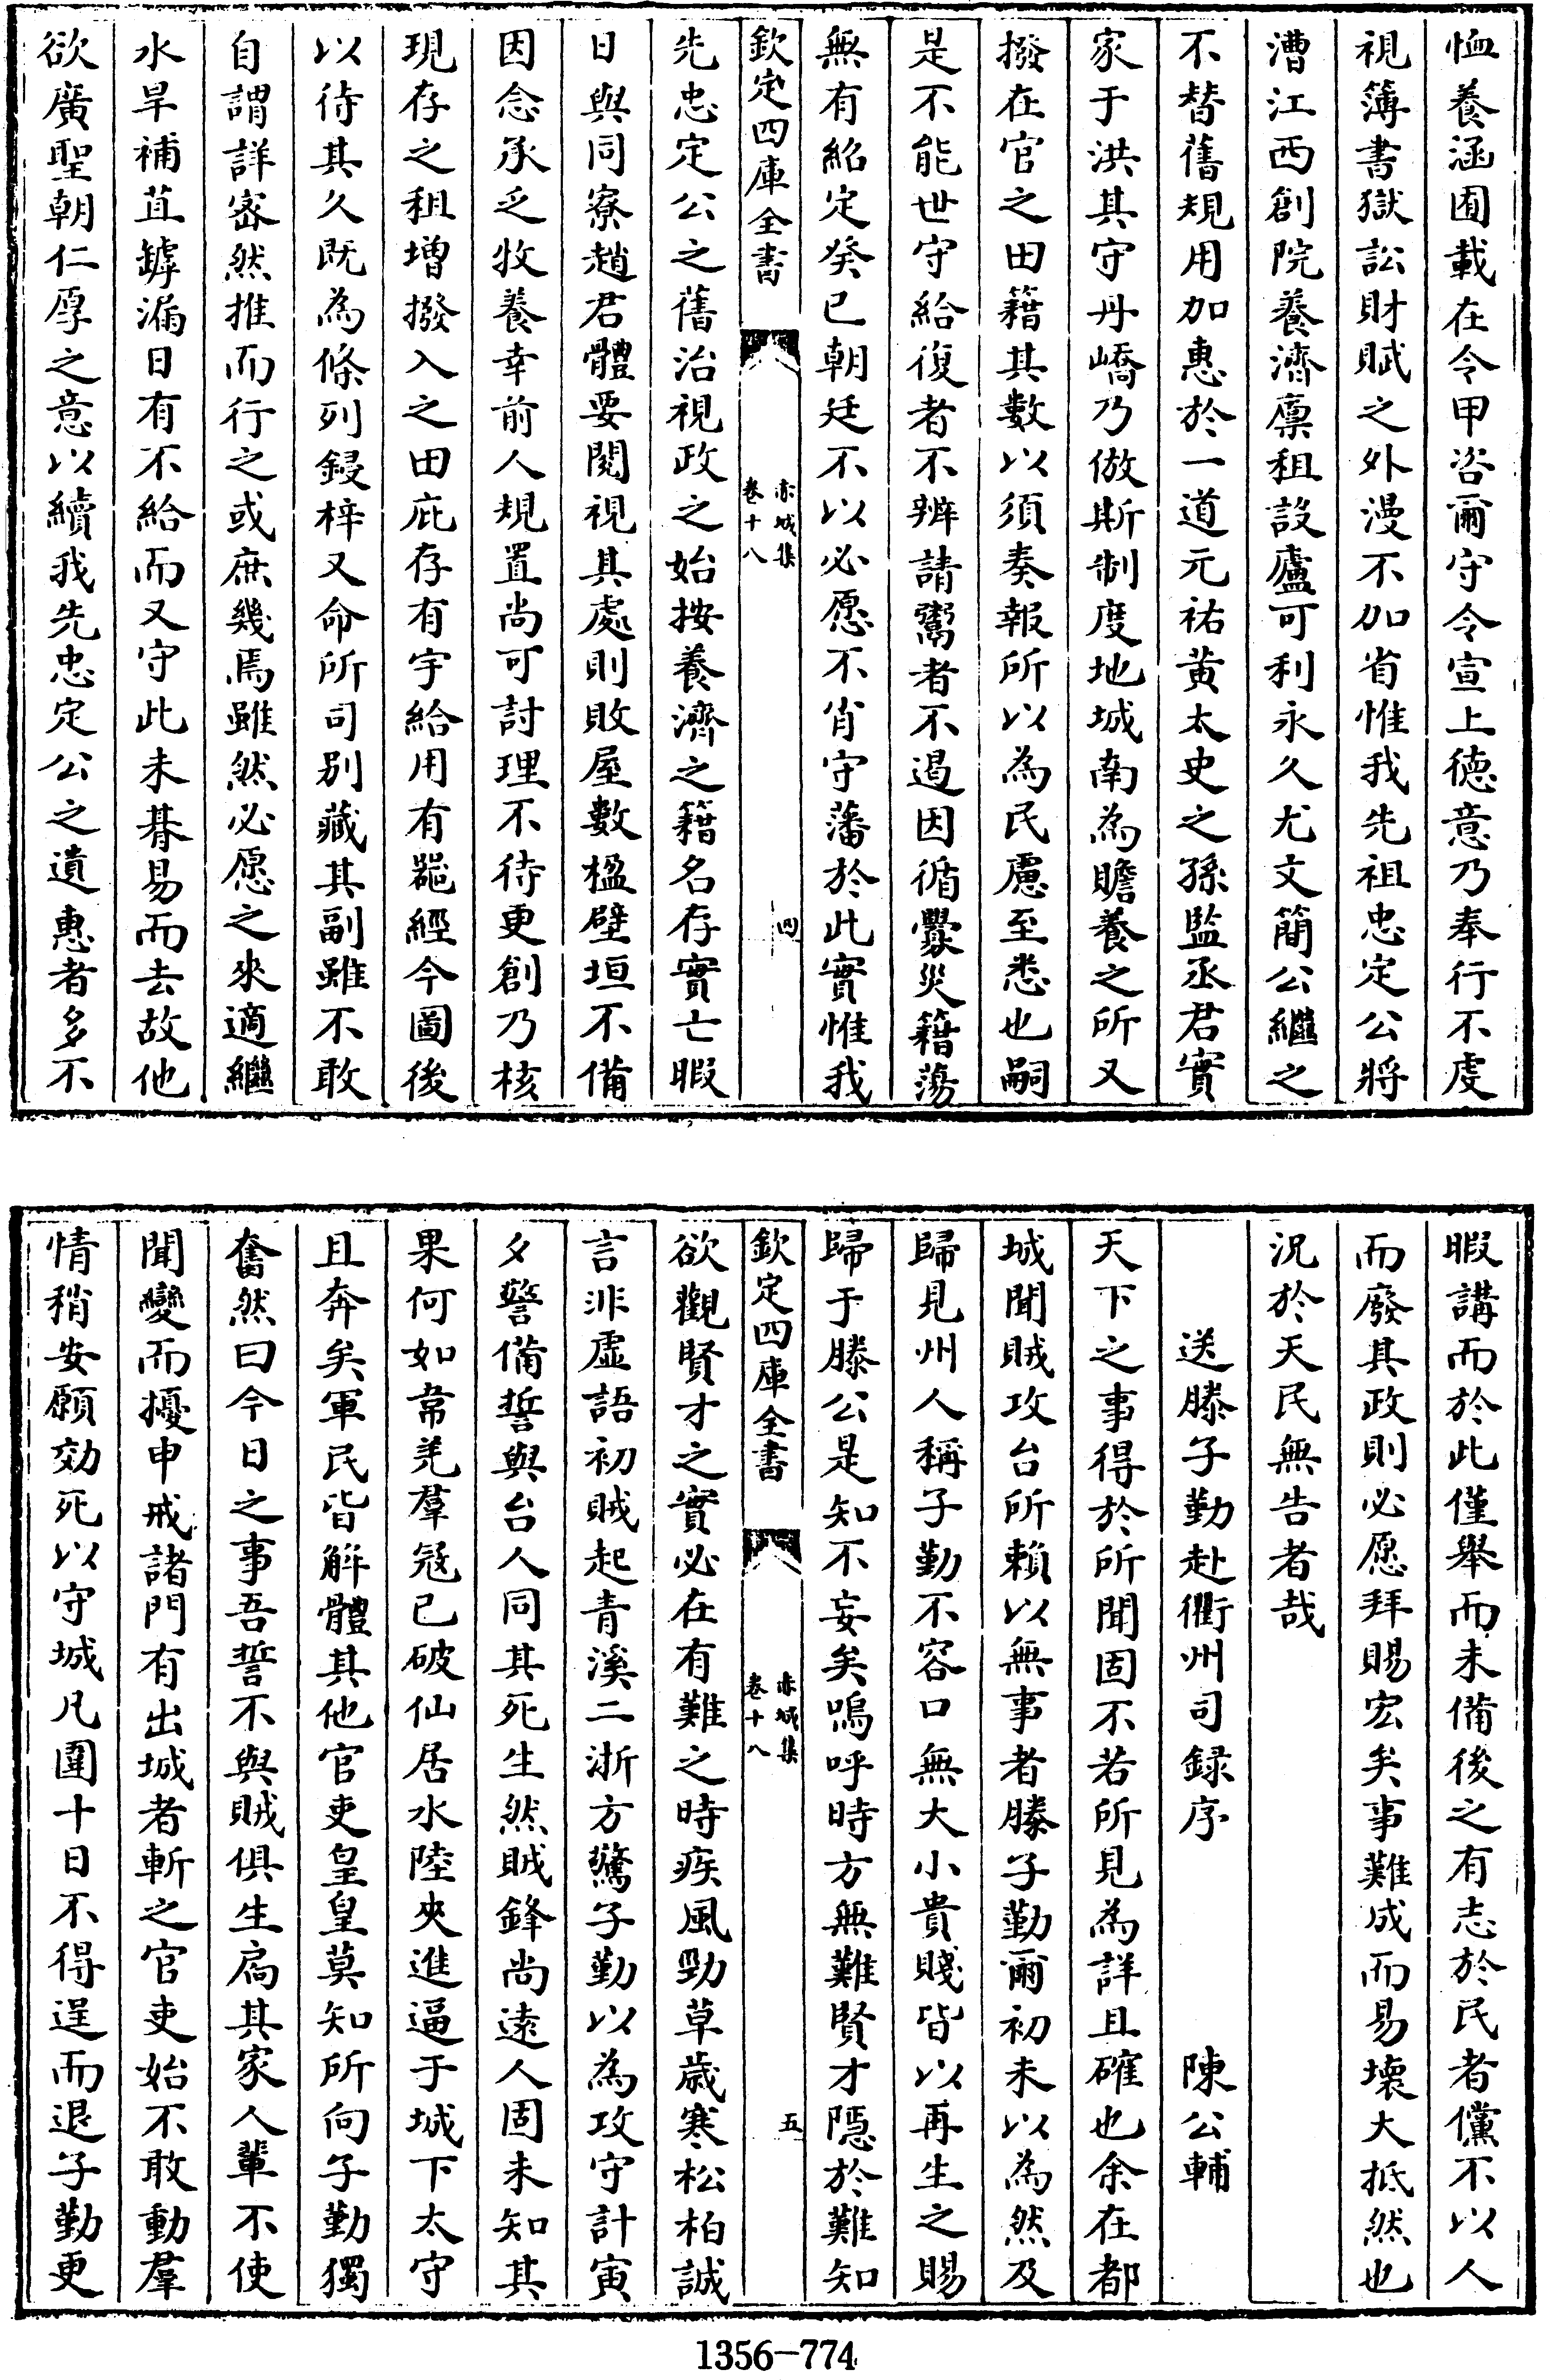 恤養涵囿載在令甲咨爾守令宣上德意乃奉行不虔
視簿書獄訟財賦之外漫不加省惟我先祖忠定公將
漕江西創院養濟廩租設廬可利永久尤文簡公繼之
不替舊規用加惠於一道元祐黄太史之孫監丞君實
家于洪其守丹嶠乃倣斯制度地城南為贍養之所又
撥在官之田籍其數以須奏報所以為民慮至悉也嗣
是不能世守給復者不辨請鬻者不遏因循爨災籍蕩
無有紹定癸巳朝廷不以必愿不肖守藩於此實惟我
欽定四庫全書
赤城集
卷十八
四
先忠定公之舊治視政之始按養濟之籍名存實亡暇
日與同寮趙君體要閱視其處則敗屋數楹壁垣不備
因念承乏牧養幸前人規置尚可討理不待更創乃核
現存之租增撥入之田庇存有宇給用有器經今圖後
以待其久既為條列鋟梓又命所司别藏其副雖不敢
自謂詳密然推而行之或庶幾焉雖然必愿之來適繼
水旱補苴罅漏日有不給而又守此未朞易而去故他
欲廣聖朝仁厚之意以續我先忠定公之遺惠者多不
暇講而於此僅舉而未備後之有志於民者儻不以人
而廢其政則必愿拜賜宏矣事難成而易壞大抵然也
況於天民無告者哉
送滕子勤赴衢州司録序　陳公輔
天下之事得於所聞固不若所見為詳且確也余在都
城聞賊攻台所賴以無事者滕子勤爾初未以為然及
歸見州人稱子勤不容口無大小貴賤皆以再生之賜
歸于滕公是知不妄矣嗚呼時方無難賢才隠於難知
欽定四庫全書
赤城集
卷十八
五
欲觀賢才之實必在有難之時疾風勁草歲寒松柏誠
言非虚語初賊起青溪二浙方驚子勤以為攻守計寅
夕警備誓與台人同其死生然賊鋒尚遠人固未知其
果何如常羌羣冦已破仙居水陸夾進逼于城下太守
且奔矣軍民皆解體其他官吏皇皇莫知所向子勤獨
奮然曰今日之事吾誓不與賊俱生扃其家人輩不使
聞變而擾申戒諸門有出城者斬之官吏始不敢動羣
情稍安願効死以守城凡圍十日不得逞而退子勤更
1356-774